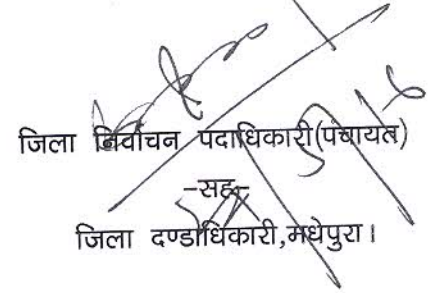 जिला निर्वाचन पदाधिकारी(पंचायत)
-सह-
जिला दण्डाधिकारी,मधेपुरा।